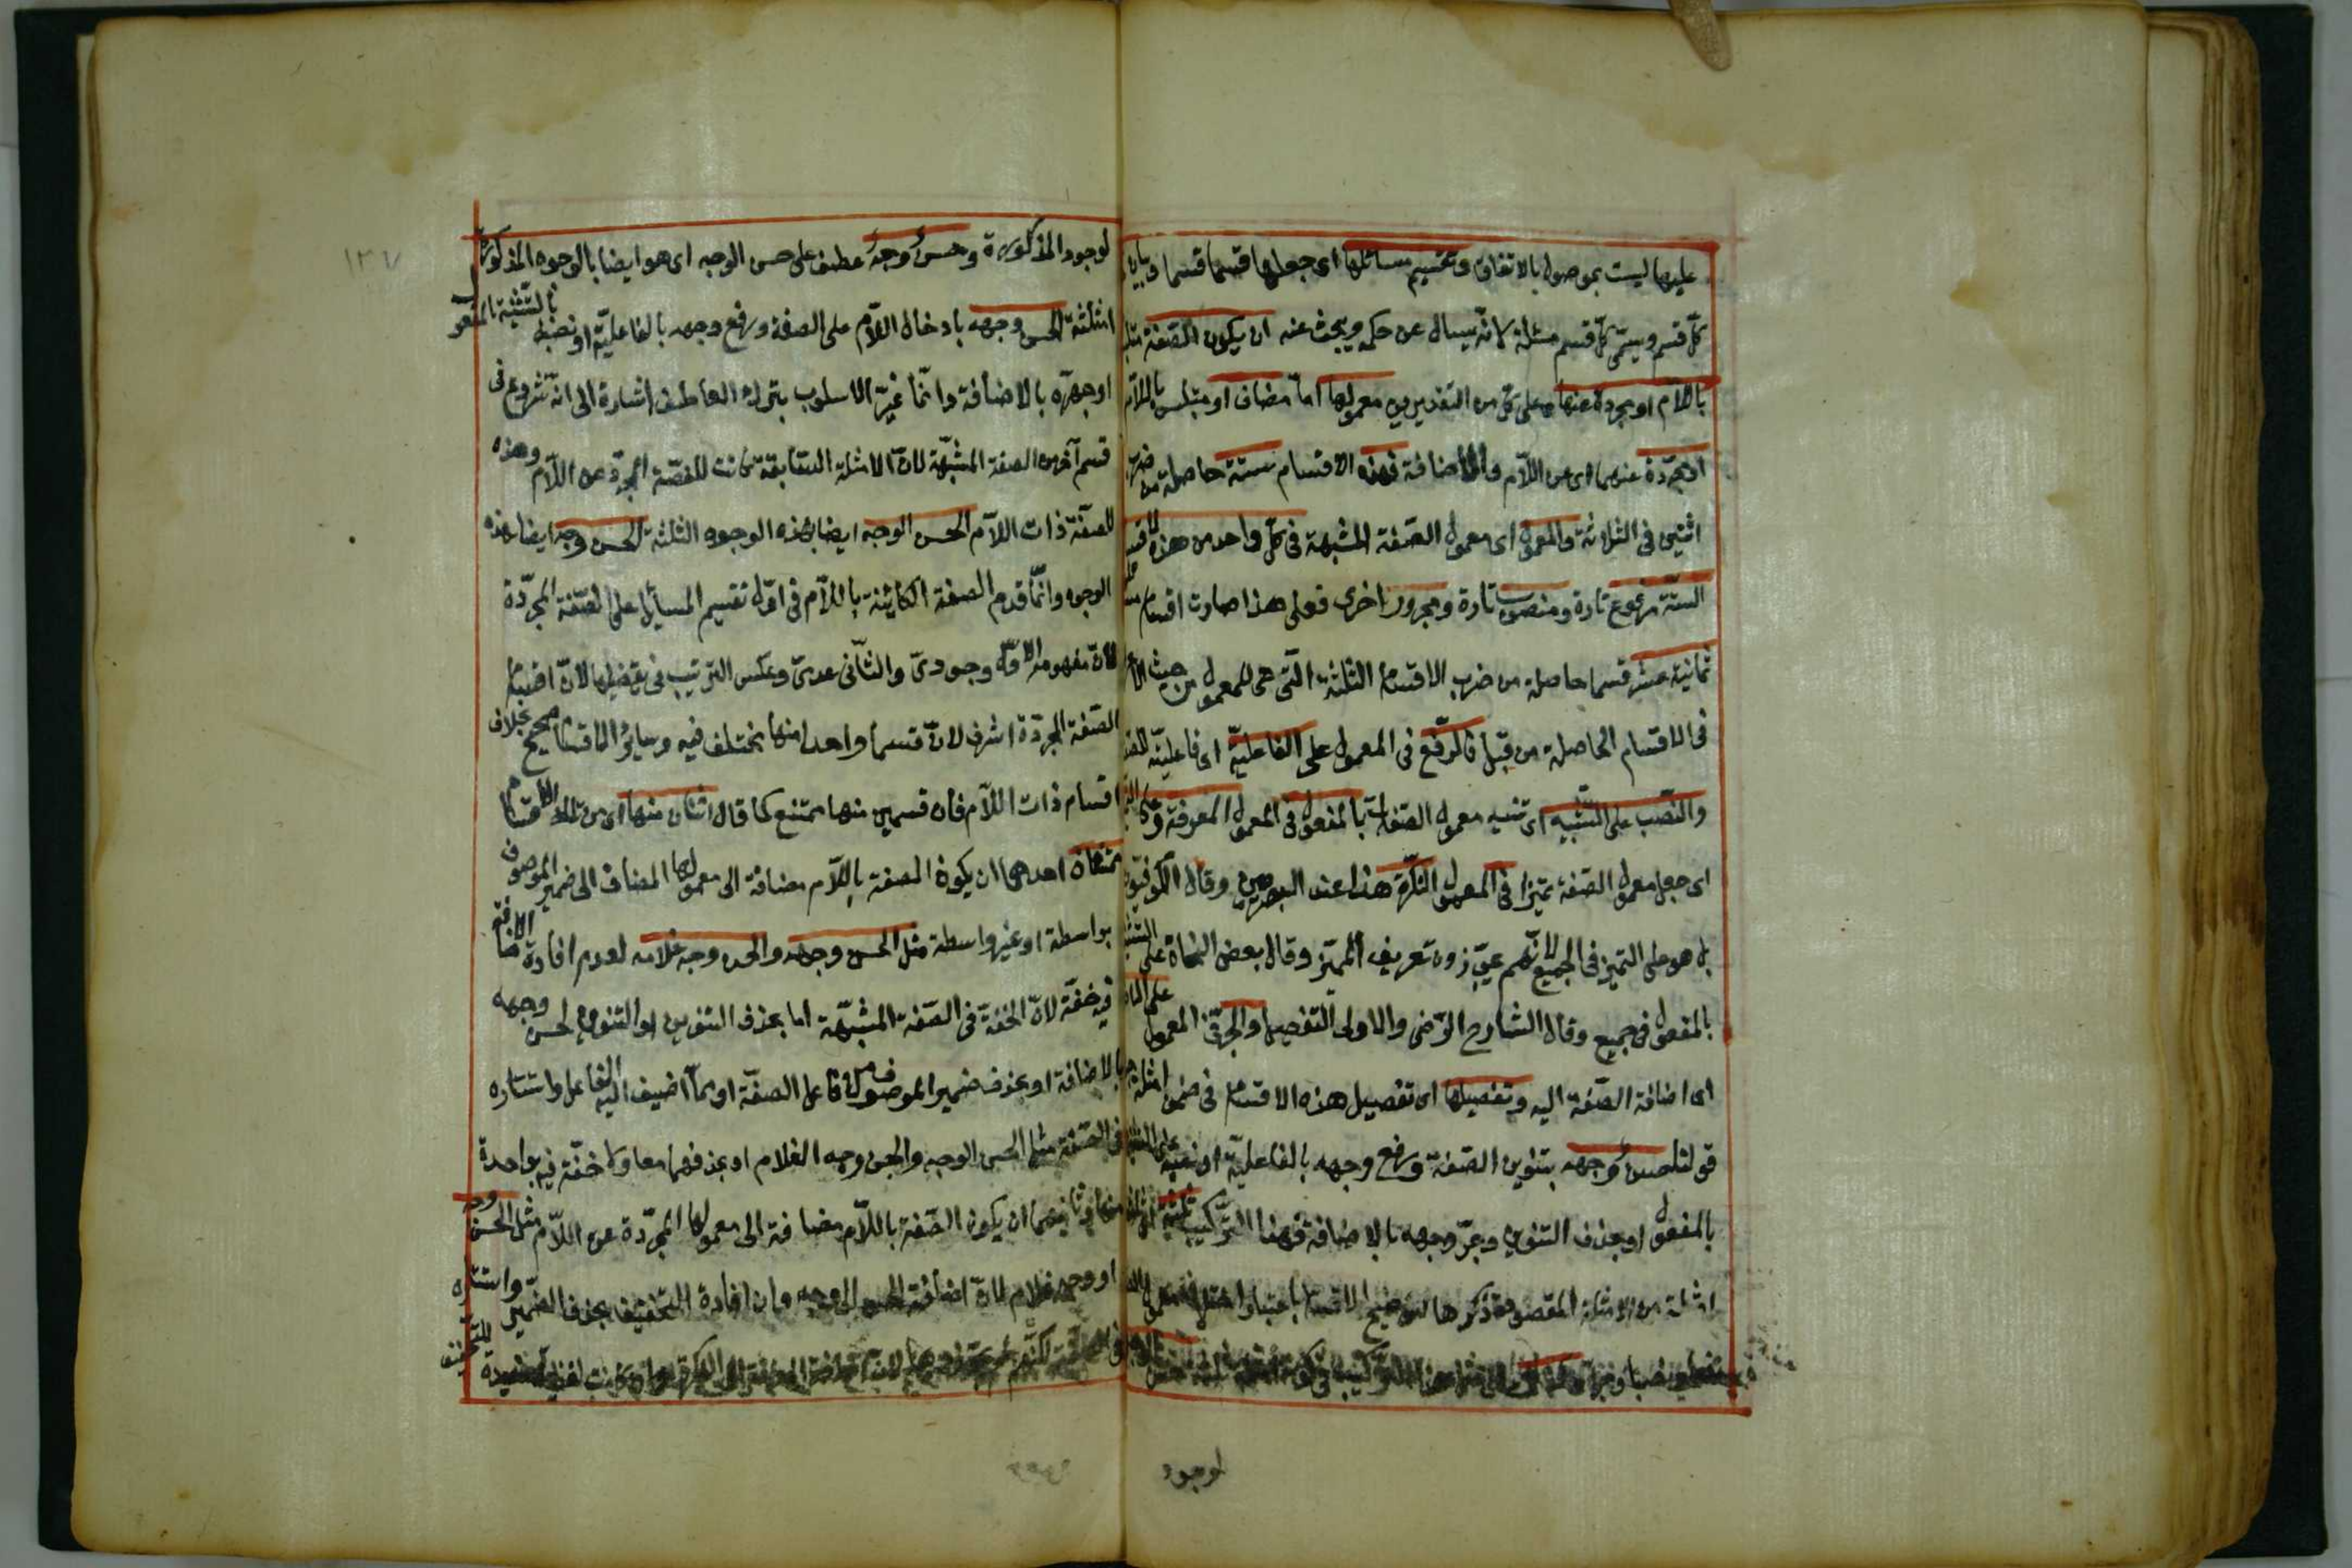 عليها ليست بموصول بالاتفاق وتقسيم مسائلها اى جعلها قسما قسما وبيان
كلّ قسم ويسمّى كلّ قسم مسئلة لانّه يسال عن حكمه ويبحث عنه ان يكون الصّفة
باللاّم او مجردة عنها وعلى كلّ من التقديرين معمولها امّا مضاف او متلبس باللاّم
او مجرّدة عنهما اى عن اللاّم والاضافة فهذه الاقسام ستة حاصلة من ضرب
اثنين فى الثلاثة والمعمول اى معمول الصّفة المشبهة فى كلّ واحد من هذه الاقسام
الستّة مرفوع تارة ومنصوب تارة ومجرور اخرى فعلى هذا صارت اقسام
ثمانية عشر قسما حاصلة من ضرب الاقسام الثلثة الّتى هى للمعمول من حيث
فى الاقسام الحاصلة من قبل فالرّفع فى المعمول على الفاعليّة اى فاعليّة
والنّصب على التّشبيه اى تشبيه معمول الصّفة بالمفعول فى المعمول المعرفة وعلى
اى جعل معمول الصّفة تميزا فى المعمول النّكرة هذا عند البصريين وقال الكوفيّون
بل هو على التميز فى الجميع لانّهم يجوّزون تعريف المميّز وقال بعض النحاة على
بالمفعول فى جميع وقال الشارح الرّضى والاولى التّفصيل والجرّ فى المعمول على
اى اضافة الصّفة اليه وتفصيلها اى تفصيل هذه الاقسام فى ضمن امثلة
قولنا حسنٌ وجهه بتنوين الصّفة ورفع وجهه بالفاعليّة او نصبه على
بالمفعول او بحذف التنوين وبجرّ وجهه بالاضافة فهذا التّركيب ثلثة
امثلة من الامثلة المقصودة ذكرها لتوضيح الاقسام باعتبار
لوجود
لوجوه المذكورة وحسنٌ وجهٌ عطف على حسن الوجه اى هو ايضا بالوجوه المذكورة
الثلثة الحسن وجهه بادخال اللاّم على الصفة ورفع وجهه بالفاعليّة او نصبه بالتشبيه بالمفعول
او جرّه بالاضافة وانّما غيّر الاسلوب بترك العاطف اشارة الى انّه شروع فى
قسم آخر من الصفة المشبّهة لانّ الامثلة السّابقة كانت للصّفة المجرّدة عن اللاّم وهذه
للصّفة ذات اللاّم الحسن الوجه ايضا بهذه الوجوه الثلثة الحسن وجه ايضا بهذه
الوجوه وانّما قدم الصفة الكائنة باللاّم فى اوّل تقسيم المسائل على الصّفة المجرّدة
لانّ مفهوم الاوّل وجودىّ والثّانى عدمىّ وعكس الترتيب فى تفصيلها لانّ اقسام
الصّفة المجرّدة اشرف لانّ قسما واحدا منها يختلف فيه وسائر الاقسام صحيح بخلاف
اقسام ذات اللاّم فان قسمين منها ممتنع كما قال اثنان منها اى من تلك الاقسام
ممتنعان احدهما ان يكون الصفة باللاّم مضافة الى معمولها المضاف الى ضمير الموصوف
بواسطة او غير واسطة مثل الحسن وجهه والحسن وجه غلامه لعدم افادة الاضافة
فيه خفّة لانّ الخفّة فى الصّفة المشبّهة اما بحذف التنوين او النون لحسن وجهه
بالاضافة او بحذف ضمير الموصوف من فاعل الصفّة او ممّا اضيف اليه الفاعل واستتاره
فى الصّفة مثل الحسن الوجه والحسن وجه الغلام او بحذفهما معا ولا خفّة فيه بواحدة
منها وثانيهما ان يكون الصّفة باللاّم مضافة الى معمولها المجرّدة عن اللاّم مثل الحسن وجه
او وجه غلام لانّ اضافة الحسن الى وجه وان افادة التخفيف بحذف الضمير واستتاره
١٣٧